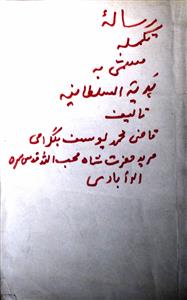 رسالۂ
تکملہ
مسمّٰی بہ
ہدیۃ السلطانیہ
تالیف
قاضی محمد یوسف بلگرامی
مرید حضرت شاہ محب اللہ قدس سرہ
الٰہ آبادی